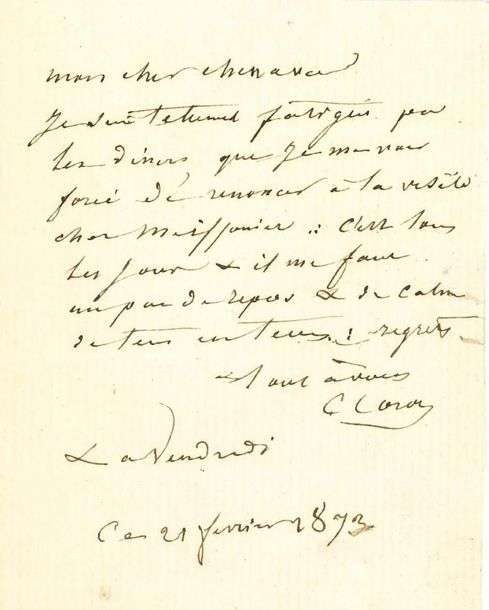 mon cher chenavard
Je suis tellement fatigué par
les diners, que Je me vois
forcé de renoncer à la visite
chez Meissonier .: c'est tous
les Jours & il me faut
un peu de repos & de calme
de tems en tems: regrets
& tout à vous
C Corot
& a Vendredi
Ce 21 fevrier 1873